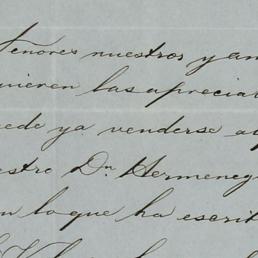 Señores nuestros y am
uieren las aprecia
ede ya venderse a
estro Dn Hermeneg
n lo que ha escrit